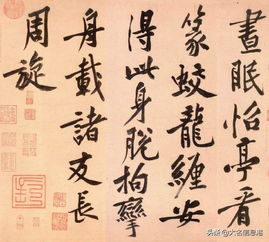 晝眠怡亭看
篆蛟龍纏安
得此身脫拘攣
舟載諸友長
周旋
头条 @大名信息港